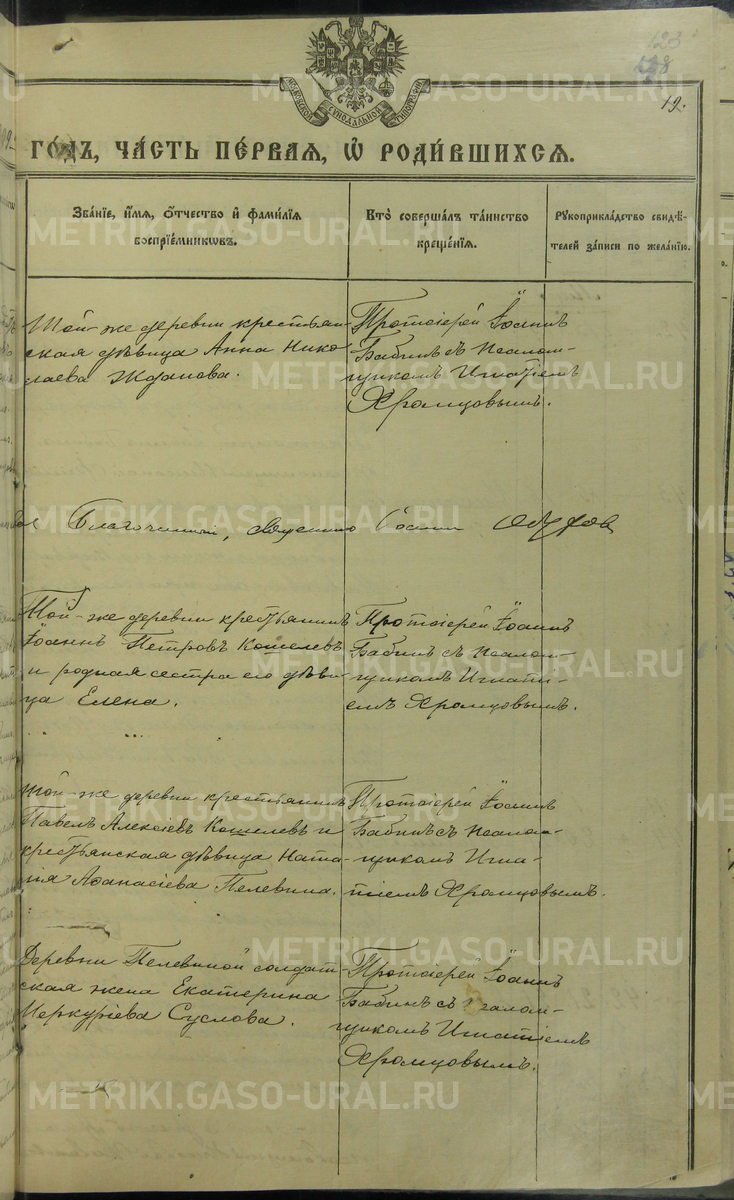 123
19.
МОСКОВСКОЙ СѴНОДАЛЬНОЙ ТИПОГРАФІИ
ГО́ДЪ, ЧА́СТЬ ПЕ́РВАЯ, Ѡ҆ РОДИ́ВШИХСЯ.
Зва́нїе, и҆́мя, ѻ҆́тчество и҆ фами́лїя
воспрїе́мникѡвъ.
Кто̀ соверша́лъ та́инство
креще́нїя.
Рꙋкоприкла́дство свидѣ́-
телей за́писи по жела́нїю.
Той-же деревни крестьян-
ская дѣвица Анна Нико
лаева Жданова.
Протоіерей Іоаннъ
Бабинъ съ псалом-
щикомъ Игнатіемъ
Храмцовымъ.
Благочинный, Священникъ Іоаннъ
Той-же деревни крестьянинъ
Іоаннъ Петровъ Кошелевъ
и родная сестра его дѣви-
ца Елена.
Протоіерей Іоаннъ
Бабинъ съ псалом-
щикомъ Игнаті-
емъ Храмцовымъ.
Той-же деревни крестьянинъ
Павелъ Алексіевъ Кошелевъ и
крестьянская дѣвица Ната-
лія Аѳанасіева Пелевина.
Протоіерей Іоаннъ
Бабинъ съ псалом-
щикомъ Игна-
тіемъ Храмцовымъ.
Деревни Пелевиной солдат-
ская жена Екатерина
Меркуріева Суслова.
Протоіерей Іоаннъ
Бабинъ съ псалом-
щикомъ Игнатіемъ
Храмцовымъ.
METRIKI.GASO-URAL.RU